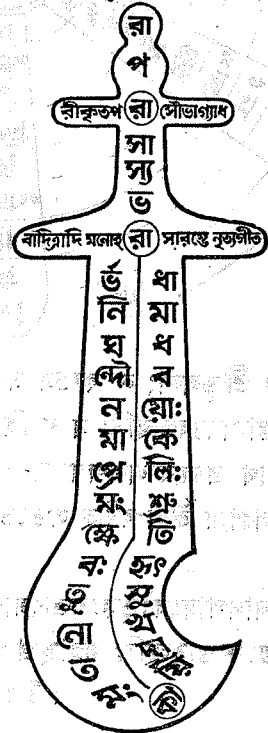 রা
প
রীকৃতপ রা সৌভাগ্যাধ
সা
স্য
ভ
বাদিত্রাদি মনোহ রা সারম্ভে নৃত্যগীত
র্ভ
নি
ঘ
ন্দী
ন
মা
প্রে
মং
ক্ষে
বঃ
স্তু
নো
ত
মং
ধা
মা
ধ
ব
য়োঃ
কে
লিঃ
শ্রু
তি
হৃৎ
সু
খ
কা